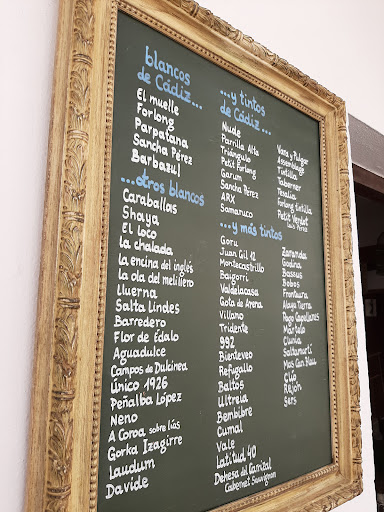 blancos
de Cádiz...
El muelle
Forlong
Parpatana
Sancha Pérez
Barbazul
...otros blancos
Caraballas
Shaya
El loco
la chalada
la encina del inglés
la ola del melillero
Lluerna
Salta Lindes
Barredero
Flor de Edalo
Aguadulce
Campos de Dulcinea
Único 1926
Peñalba López
Neno
A Coroa sobre liás
Gorka Izagirre
Laudum
Davide
...y tintos
de Cádiz...
Nude
Parrilla Alta
Triángulo
Petit Forlong
Garum
Sancha Pérez
ARX
Samaruco
Vara y Pulgar
Assemblage
Tintilla
Taberner
Tesalia
Forlong tintilla
Petit Verdot
Luis Pérez
...y más tintos
Goru
Juan Gil 12
Montecastrillo
Baigorri
Valdelacasa
Gota de Arena
Villano
Tridente
992
Bienteveo
Refugallo
Baltos
Ultreia
Bembibre
Cumal
Vale
Latitud 40
Dehesa del Carrizal
Cabernet Sauvignon
Zaranda
Godina
Bassus
Bobos
Frontaura
Alaya Tierra
Pago Capellanes
Mártelo
Clunia
Saltamartí
Mas Can Blau
Clío
Sers